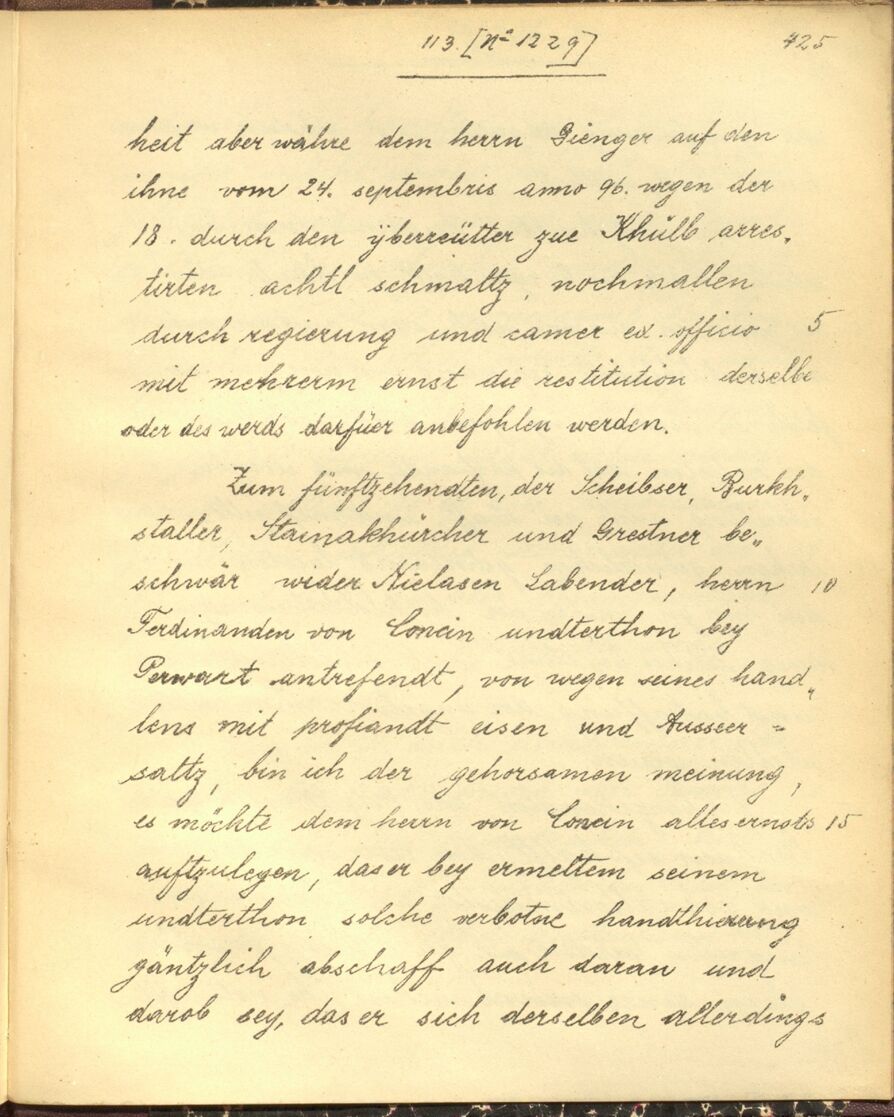 113. [Nº 1229] 425
heit aber währe dem herrn Gienger auf den
ihne vom 24. septembris anno 96. wegen der
18. durch den ÿberreütter zue Khülb arres„
tirten achtl schmaltz, nochmallen
durch regierung und camer ex. officio 5
mit mehrerm ernst die restitution derselbe
oder des werds darfüer anbefohlen werden.
Zum fünftzehendten, der Scheibser, Purkh„
staller, Stainakhürcher und Grestner be„
schwär wider Niclasen Labender, herrn 10
Ferdinanden von Concin undterthon bey
Perwart antrefendt, von wegen seines hand„
lens mit profiandt eisen und Ausseer =
saltz, bin ich der gehorsamen meinung,
es möchte dem herrn von Concin alles ernsts 15
auftzulegen, das er bey ermeltem seinem
undterthon solche verbotne handthierung
gäntzlich abschaff auch daran und
darob sey, das er sich derselben allerdings